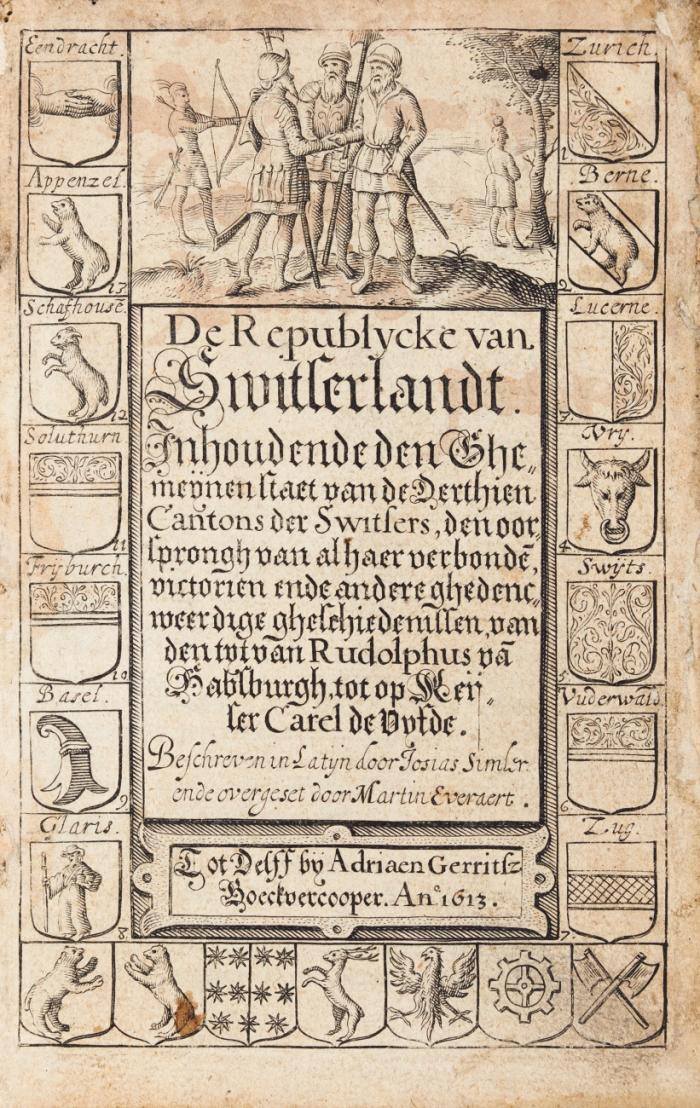 Eendracht.
Appenzel.
13
Schafhousē.
12
Soluthurn
11
Fryburch.
10
Basel.
9
Glaris.
8
Zurich.
1.
Berne.
2
Lucerne.
3.
Vry.
4
Swyts.
5
Vnderwald.
6
Zug.
7
De Republycke van.
Switserlandt.
Inhoudende den Ghe„
meynen staet van de Derthien
Cantons der Switsers, den oor
sprongh van al haer verbondē,
victorien ende andere ghedenc„
weerdige gheschiedenissen, van
den tyt van Rudolphus vā
Habsburgh, tot op Key„
ser Carel de Vyfde.
Beschreven in Latyn door Josias Simler
ende overgeset door Martin Everaert.
Tot Delff by Adriaen Gerritsz
Boeckvercooper. Anᵒ 1613.